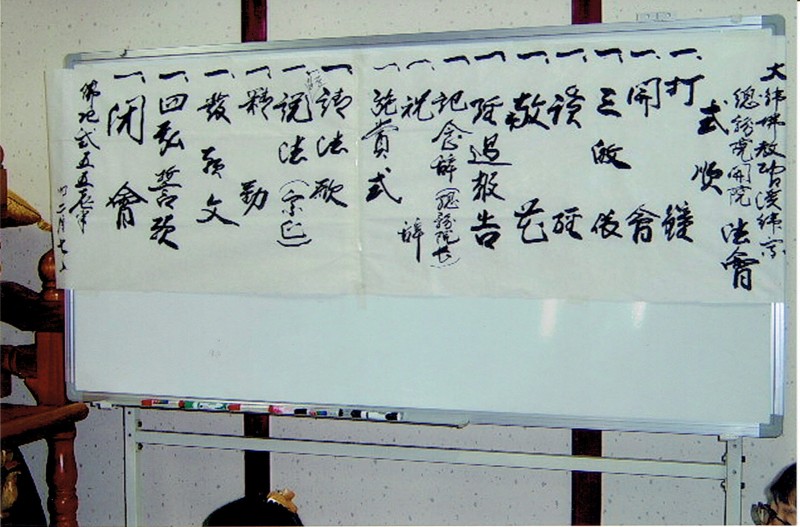 大韓佛教
總務院開院 法會
式順
一. 打鐘
一. 開會
一. 三皈依
一. 讀經
一. 献花
一. 經過報告
一. 記念辞 (總務院長)
一. 祝辞
一. 施賞式
一. 請法歌
一. 說法 (宗正)
一. 精勤
一. 發願文
一. 四弘誓願
一. 閉會
二月七日